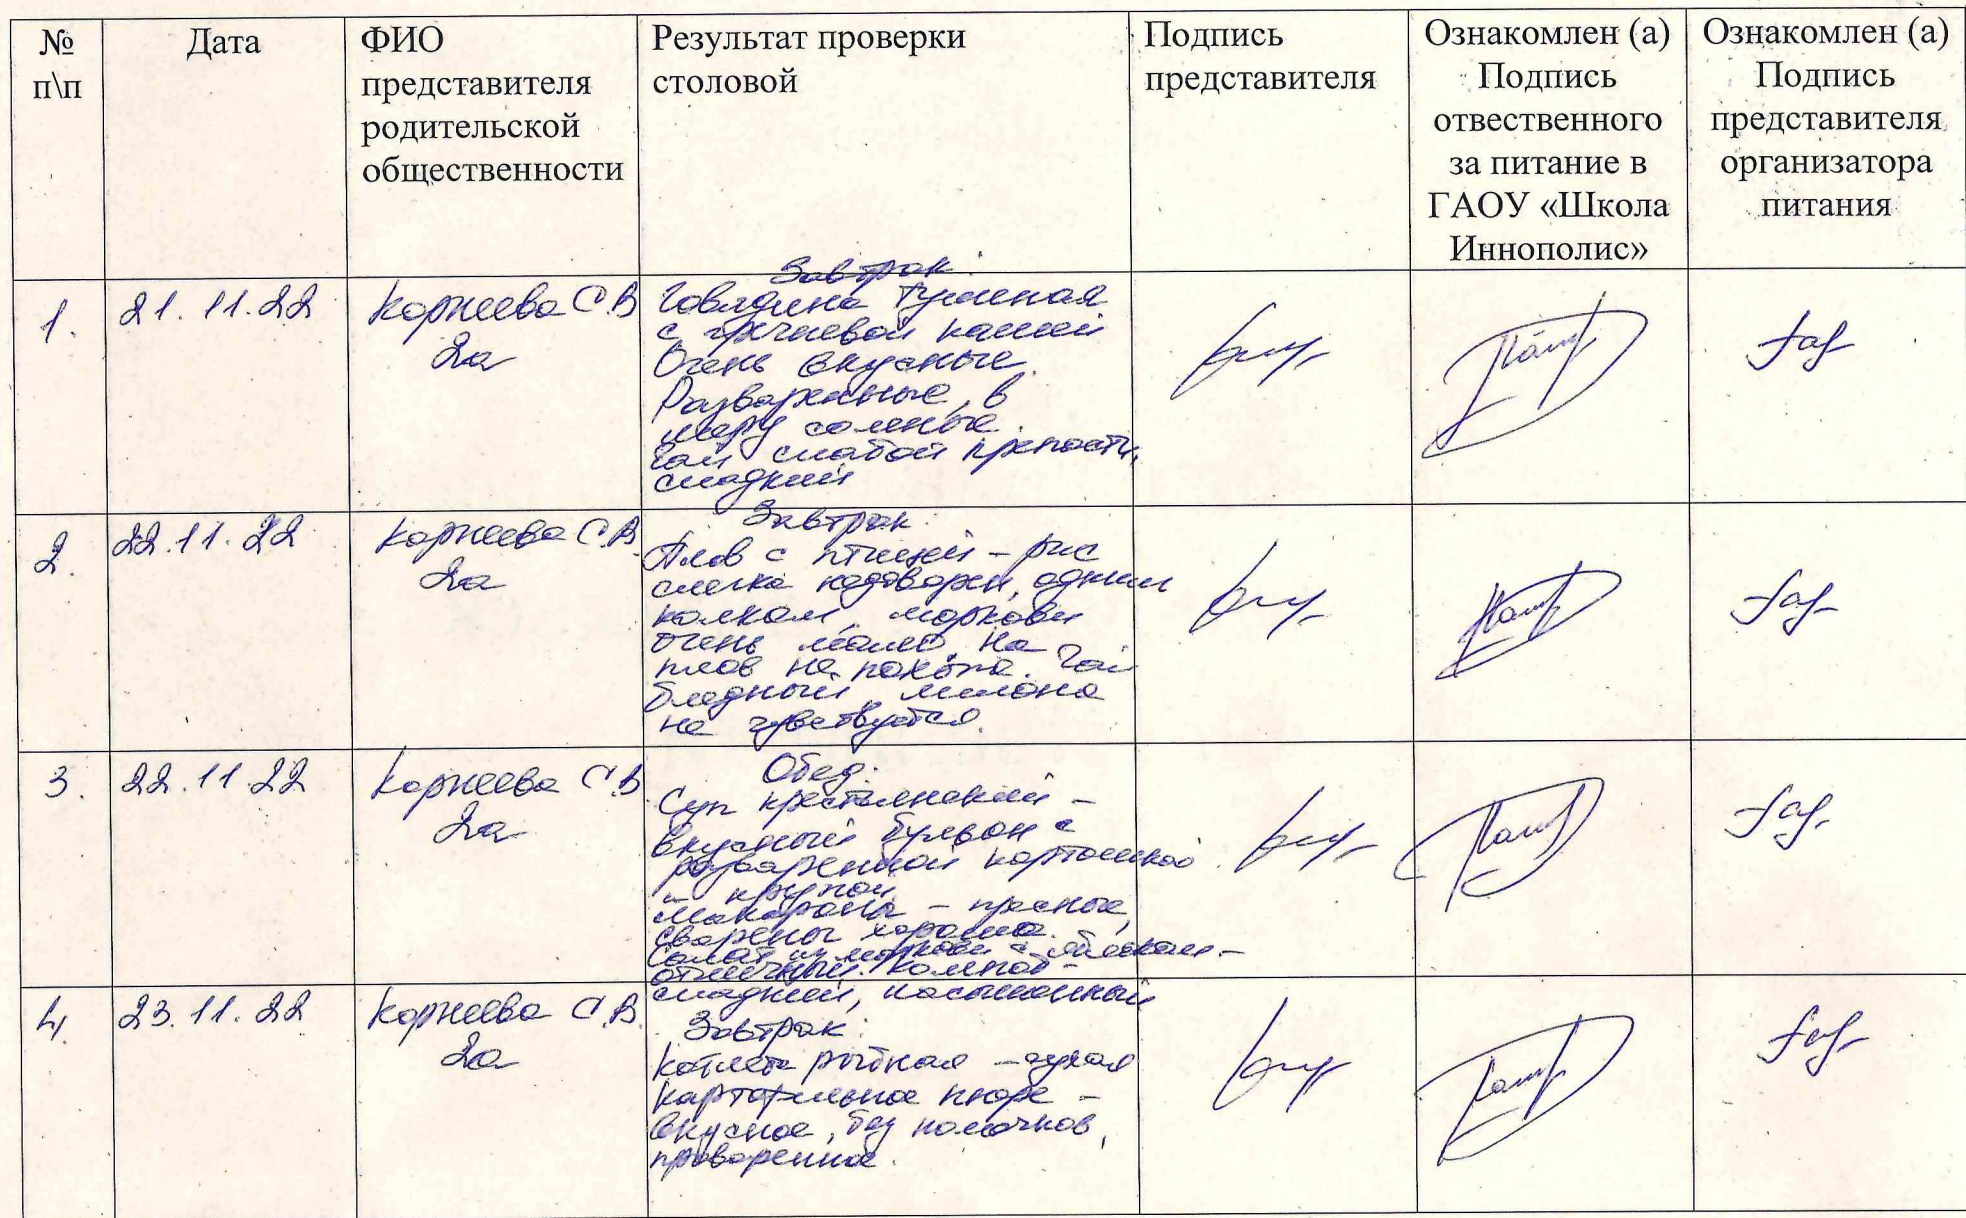 № п\п
Дата
ФИО
представителя
родительской
общественности
Результат проверки
столовой
Подпись
представителя
Ознакомлен (а)
Подпись
отвественного
за питание в
ГАОУ «Школа
Иннополис»
Ознакомлен (а)
Подпись
представителя
организатора
питания
1.
21.11.22
Корнеева С.В
2а
Завтрак:
Говядина тушеная
с гречневой кашей
Очень вкусные.
Разваренные, в
меру соленые.
Чай слабой крепости,
сладкий
2.
22.11.22
Корнеева С.В.
2а
Завтрак:
Плов с птицей – рис
слегка недоварен, одним
комком, моркови
очень мало. На
плов не похоже. Чай
бледный, лимона
не чувствуется.
3.
22.11.22
Корнеева С.В
2а
Обед:
Суп крестьянский –
вкусный бульон с
разваренной картошкой
и крупой
Макароны – пресные,
сварены хорошо.
Салат из моркови с яблоком –
отличный. Компот –
сладкий, насыщенный
4.
23.11.22
Корнеева С.В.
2а
Завтрак:
Котлета рыбная – сухая
Картофельное пюре –
вкусное, без комочков,
проваренное.